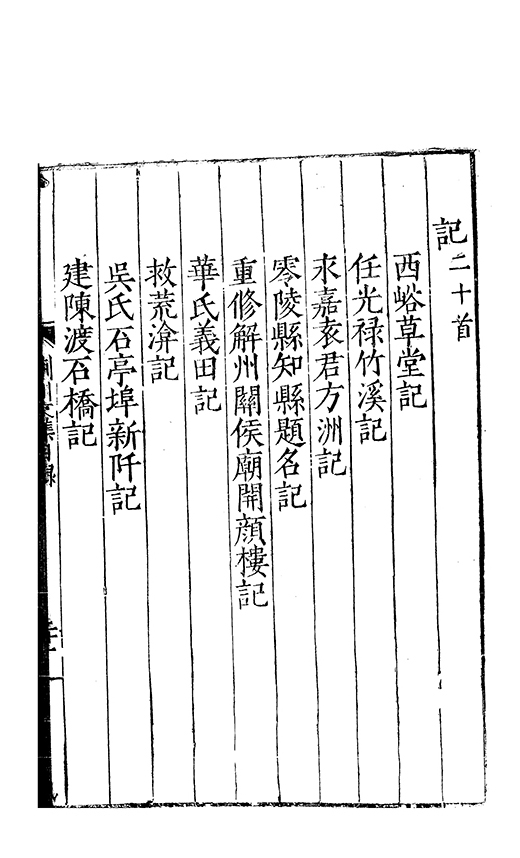 記二十首
西峪草堂記
任光禄竹溪記
永嘉袁君方洲記
零陵縣知縣題名記
重修解州關侯廟開顔樓記
華氏義田記
救荒渰記
吳氏石亭埠新阡記
建陳渡石橋記
集目録